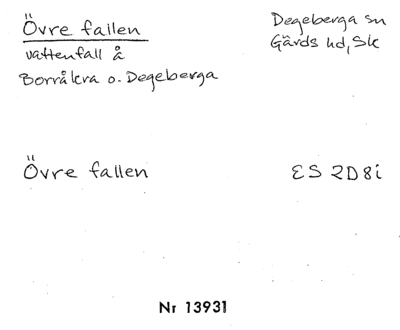 Övre fallen
vattenfall å
Borråkra o. Degeberga
Degeberga sn
Gärds hd, Sk
Övre fallen
ES 2D8i
Nr 13931